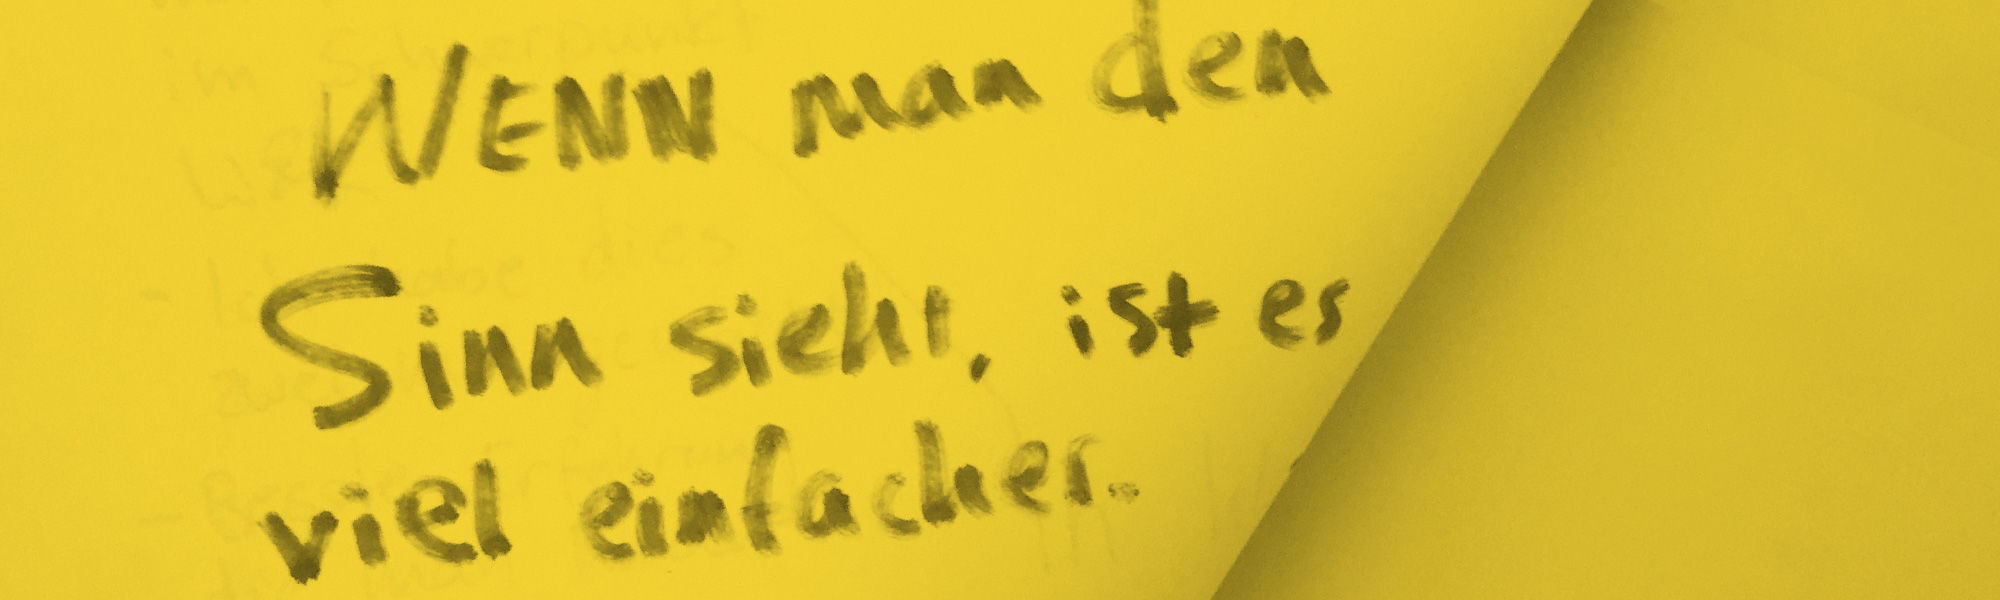 WENN man den
Sinn sieht, ist es
viel einfacher.